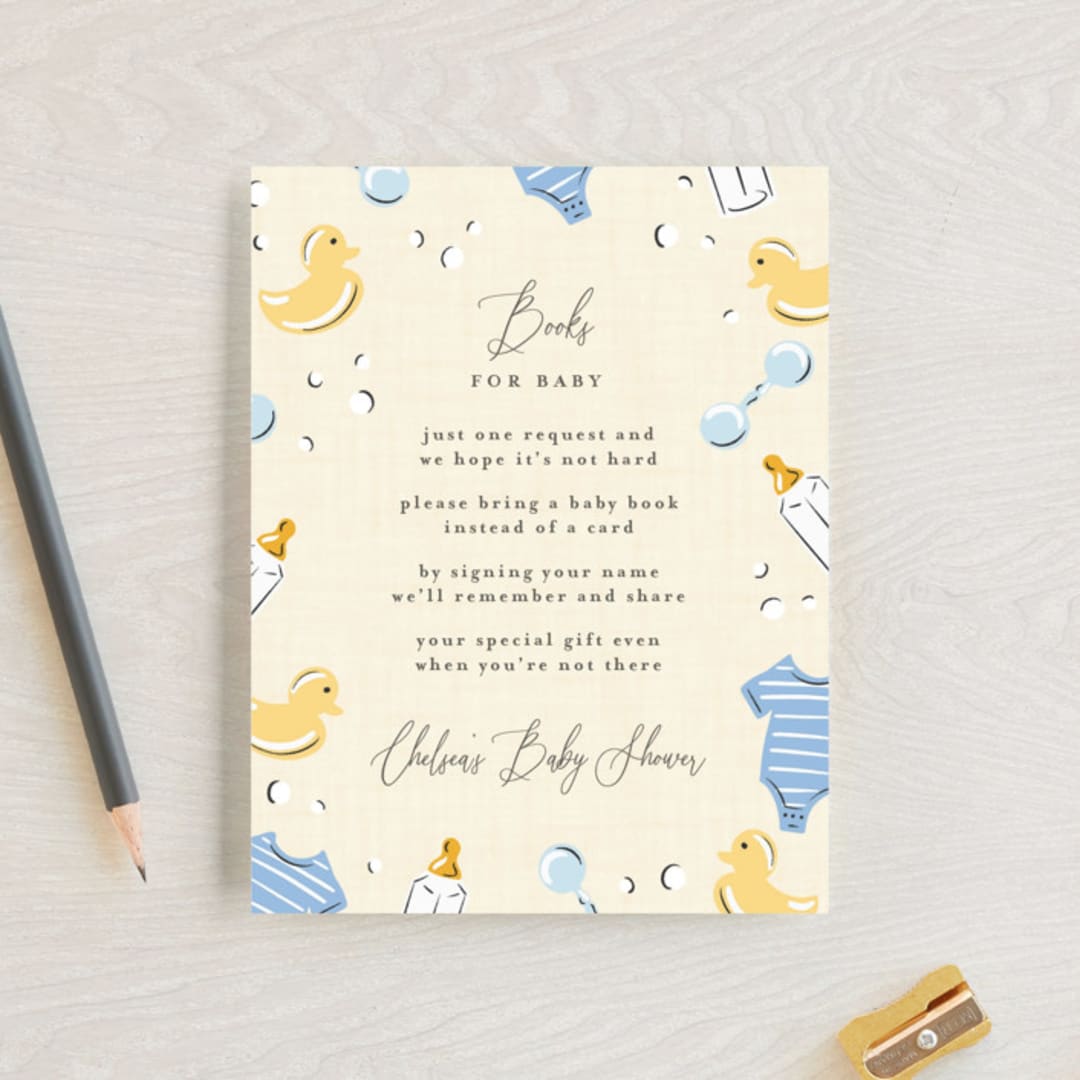 Books
FOR BABY
just one request and
we hope it's not hard
please bring a baby book
instead of a card
by signing your name
we'll remember and share
your special gift even
when you're not there
Chelsea's Baby Shower